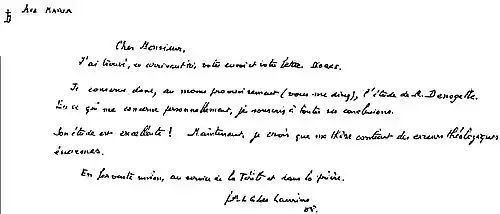 Ave Maria
Cher Monsieur,
J'ai trouvé, en arrivant ici, votre envoi et votre lettre.
Je conserve donc, au moins provisoirement (vous me direz), l'étude de M.
En ce qui me concerne personnellement, je souscris à toutes ses conclusions.
Son étude est excellente ! Maintenant, je crois que ma thèse contient des erreurs théologiques
énormes.
En fervente union, au service de la Vérité et dans la prière.
op.